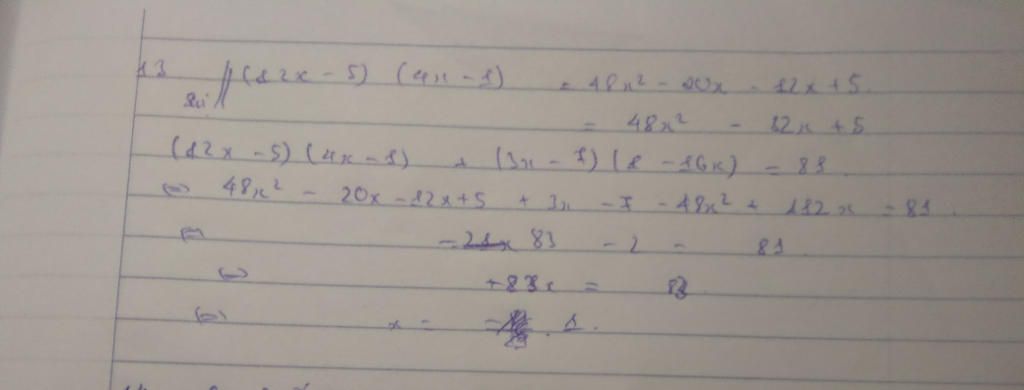 13 (12x - 5) (4x - 1) = 48x² - 20x - 12x + 5.
= 48x² - 32x + 5
(12x - 5)(4x - 1) + (3x - 7)(1 - 16x) = 81.
⇔ 48x² - 20x - 12x + 5 + 3x - 7 - 48x² + 112x = 81.
⇔ 83 - 2 = 81.
⇔ +83x = 83
⇔ x = 1.